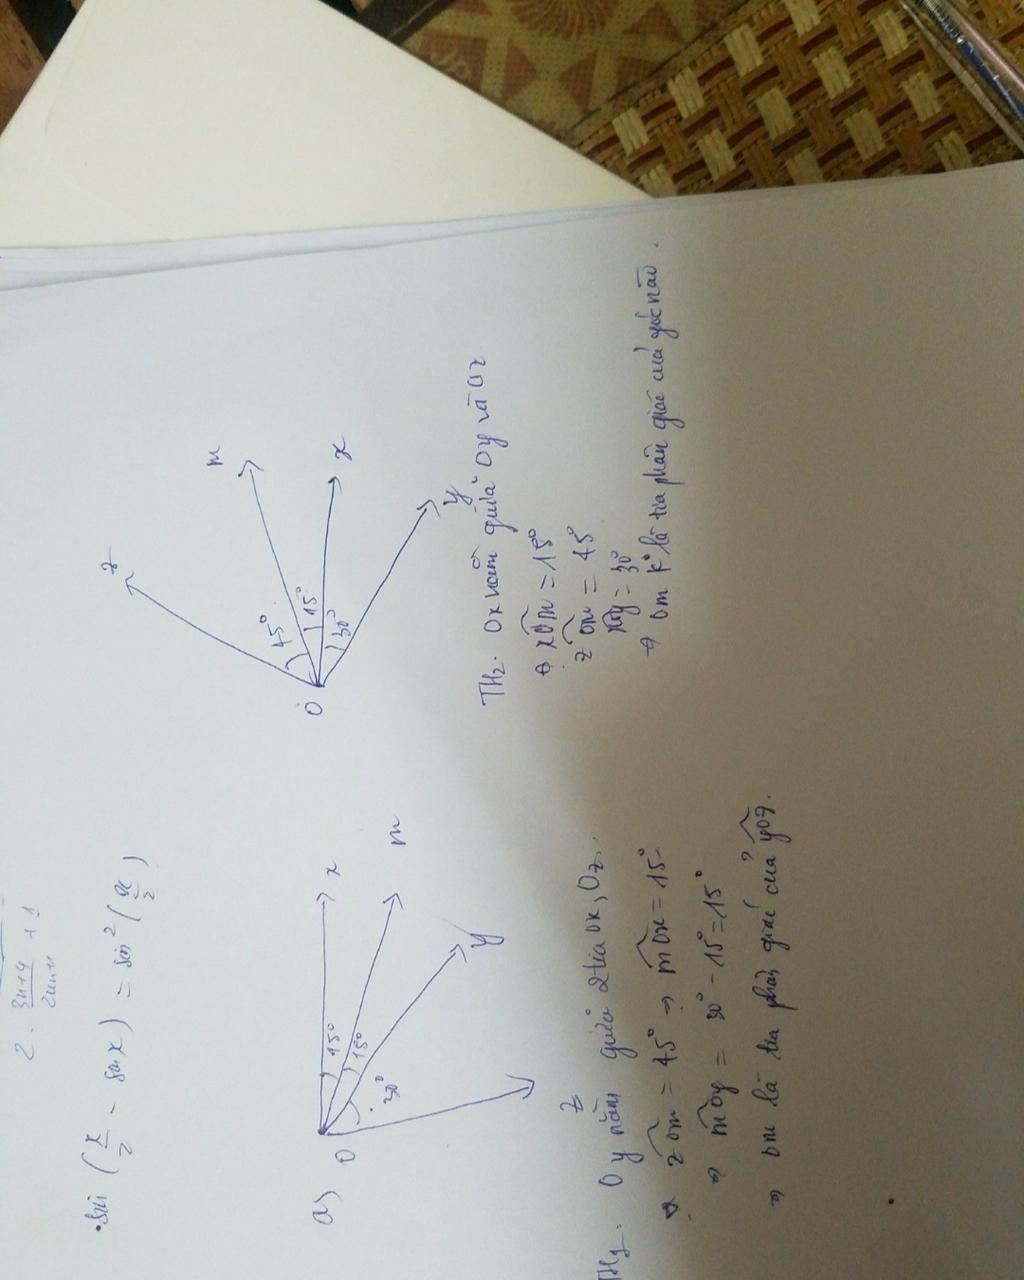 2. \frac{3n+4}{2n+1} + 1
• sin ( \frac{x}{2} - sin x ) = sin² ( \frac{x}{2} )
a)
O
15°
15°
30°
x
m
y
z
O
45°
15°
30°
z
m
x
y
TH1. Oy nằm giữa 2 tia Ox, Oz.
zOm = 45° ⇒ mOx = 15°
⇒ mOy = 30° - 15° = 15°
⇒ Om là tia phân giác của yOx.
TH2. Ox nằm giữa Oy và Oz
xOm = 15°
zOm = 45°
xOy = 30°
⇒ Om k° là tia phân giác của góc nào.